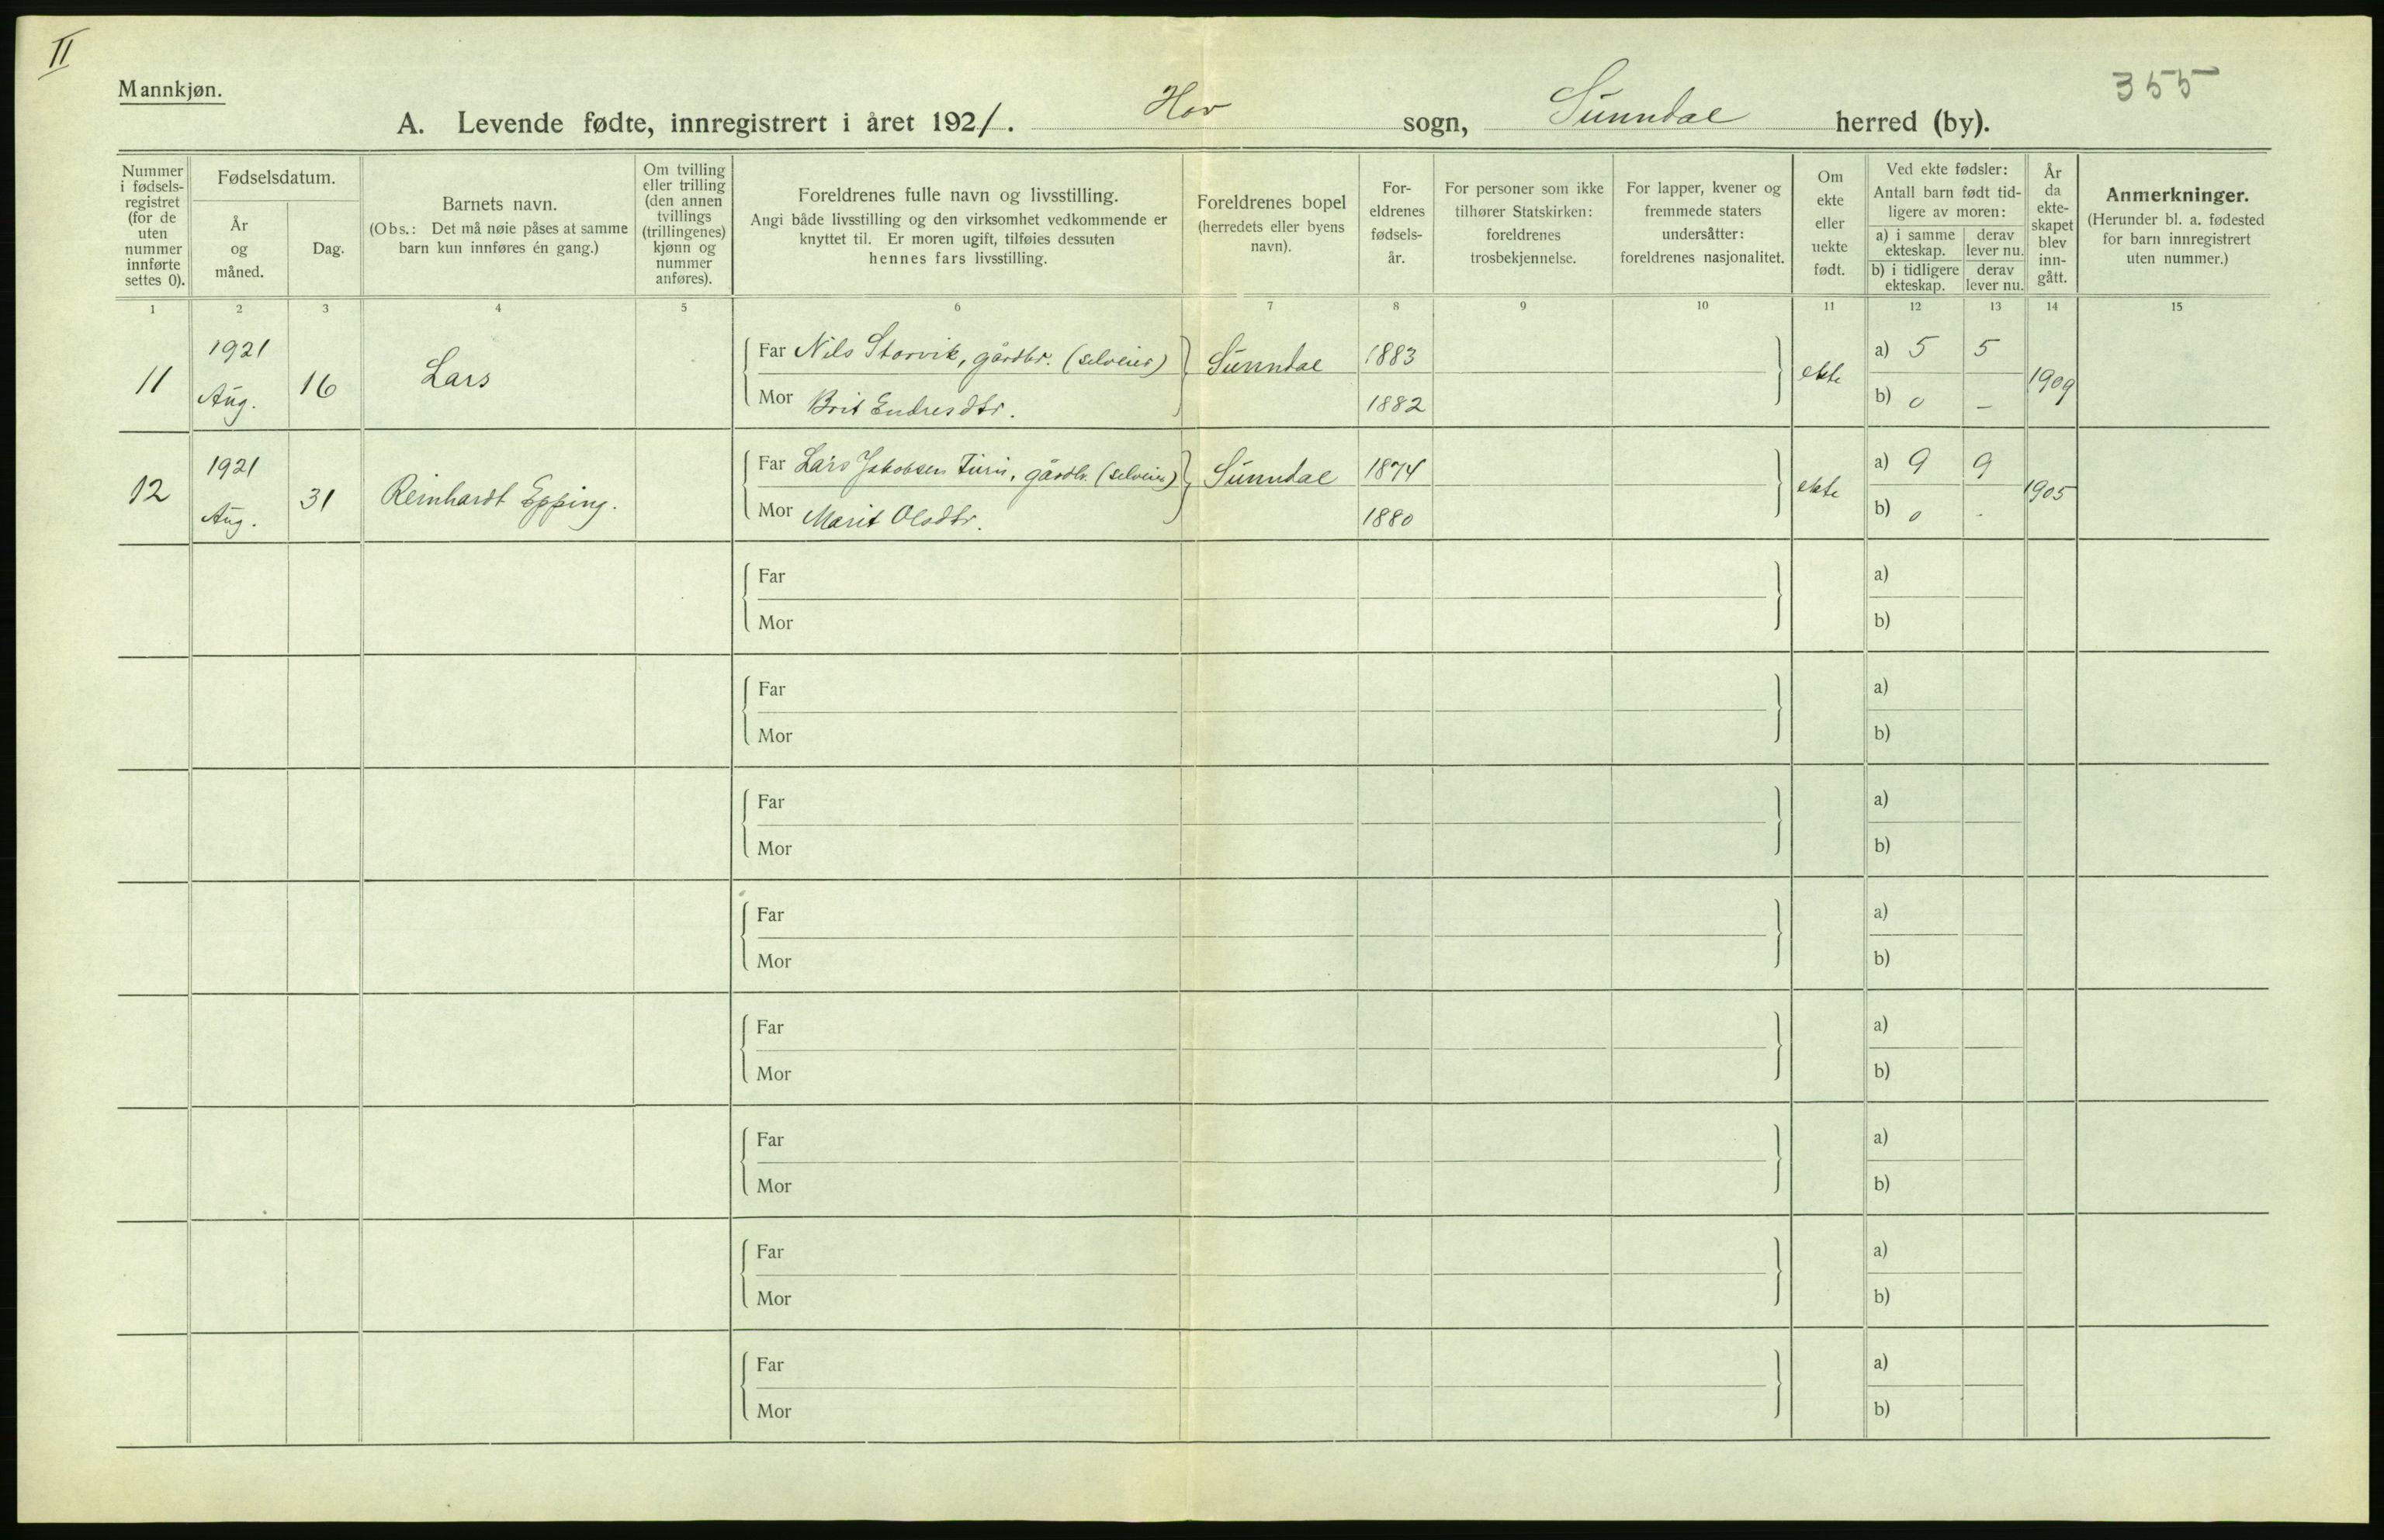 II
Mannkjøn.
355
A. Levende fødte, innregistrert i året 1921. Hov sogn, Sunndal herred (by).
Nummer i fødsels-registret (for de uten nummer innførte settes 0).
Fødselsdatum.
År og måned.
Dag.
Barnets navn.
(Obs.: Det må nøie påses at samme barn kun innføres én gang.)
Om tvilling eller trilling (den annen tvillings (trillingenes) kjønn og nummer anføres).
Foreldrenes fulle navn og livsstilling.
Angi både livsstilling og den virksomhet vedkommende er knyttet til. Er moren ugift, tilføies dessuten hennes fars livsstilling.
Foreldrenes bopel (herredets eller byens navn).
For-eldrenes fødsels-år.
For personer som ikke tilhører Statskirken: foreldrenes trosbekjennelse.
For lapper, kvener og fremmede staters undersåtter: foreldrenes nasjonalitet.
Om ekte eller uekte født.
Ved ekte fødsler:
Antall barn født tid-ligere av moren:
a) i samme ekteskap. derav lever nu.
b) i tidligere ekteskap. derav lever nu.
År da ekte-skapet blev inn-gått.
Anmerkninger.
(Herunder bl. a. fødested for barn innregistrert uten nummer.)
1 2 3 4 5 6 7 8 9 10 11 12 13 14 15
11 1921 Aug. 16 Lars
Far Nils Storvik, gårdbr. (selveier) Sunndal 1883 ekte a) 5 5 1909
Mor Brit Endresdtr. 1882 b) 0 –
12 1921 Aug. 31 Reinhardt Epping.
Far Lars Jakobsen, gårdbr. (selveier) Sunndal 1874 ekte a) 9 9 1905
Mor Marit Olsdtr. 1880 b) 0 -
Far a)
Mor b)
Far a)
Mor b)
Far a)
Mor b)
Far a)
Mor b)
Far a)
Mor b)
Far a)
Mor b)
Far a)
Mor b)
Far a)
Mor b)